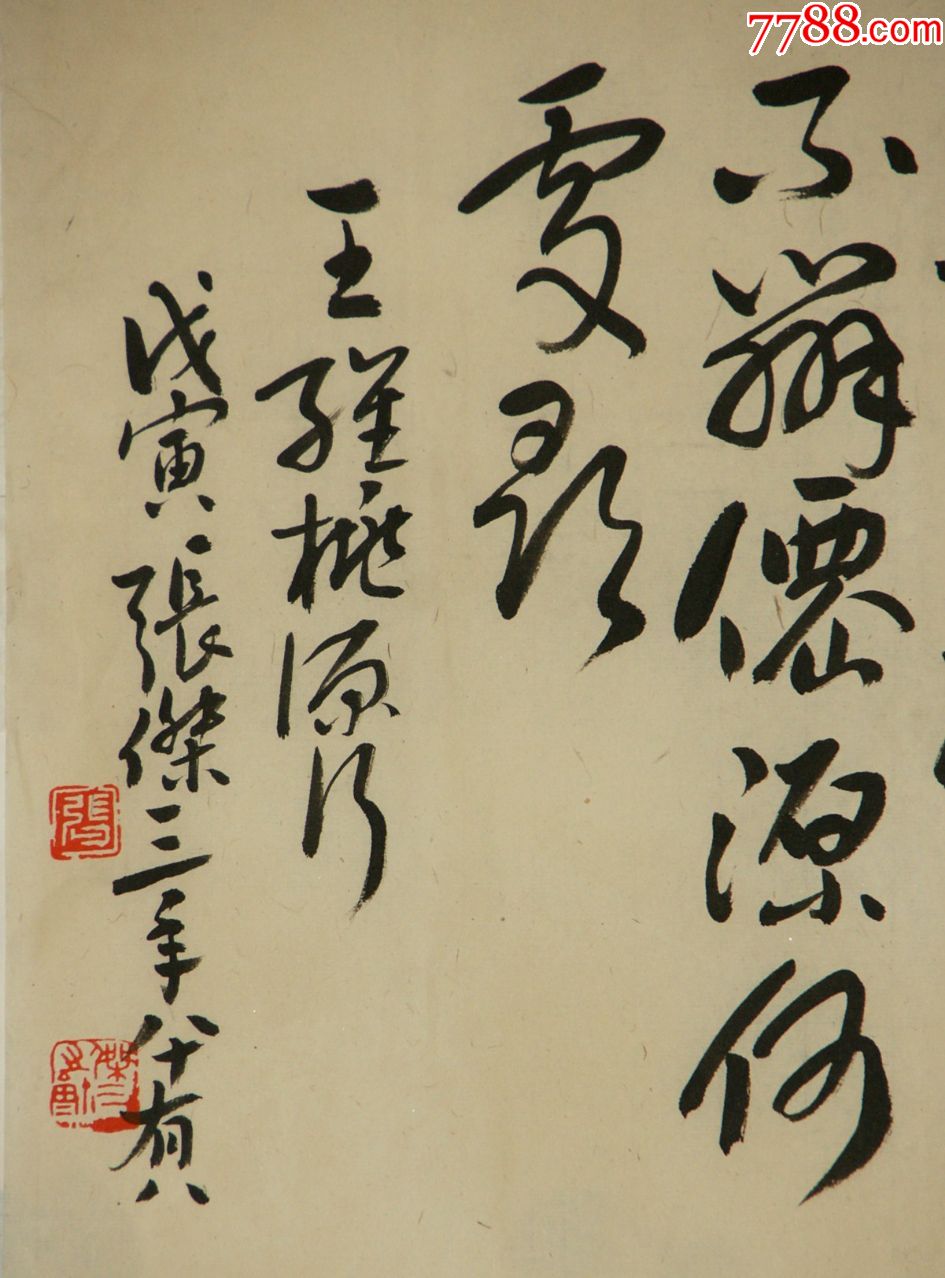 7788.com
不辨僊源何
處尋
王維桃源行
戊寅張傑三年八十有八
張